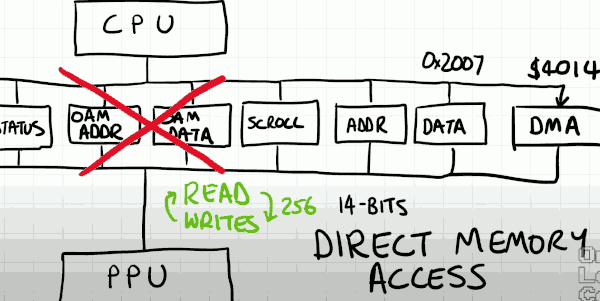 CPU
0x2007 $4014
STATUS OAM ADDR OAM DATA SCROLL ADDR DATA DMA
READ WRITES 256 14-BITS
DIRECT MEMORY ACCESS
PPU